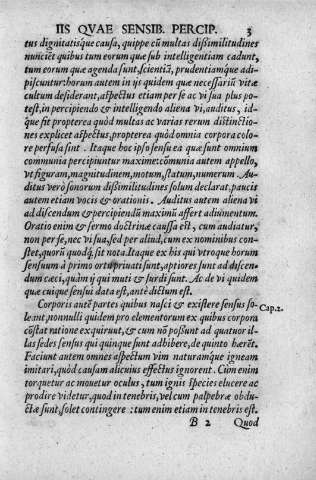 IIS QVAE SENSIB. PERCIP. 3
tus dignitatisque causa, quippe cū multas dißimilitudines
nunciet quibus tum eorum quæ sub intelligentiam cadunt,
tum eorum quæ agenda sunt, scientiā, prudentiamque adi-
piscuntur: horum autem in ijs quidem quæ necessariū vitæ
cultum desiderant, aspectus etiam per se ac vi sua plus po-
test, in percipiendo & intelligendo aliena vi, auditus, id-
que fit propterea quòd multas ac varias rerum distinctio-
nes explicet aspectus, propterea quòd omnia corpora colo-
re perfusa sint. Itaque hoc ipso sensu ea quæ sunt omnium
communia percipiuntur maxime: cōmunia autem appello,
vt figuram, magnitudinem, motum, statum, numerum. Au-
ditus verò sonorum dißimilitudines solùm declarat, paucis
autem etiam vocis & orationis. Auditus autem aliena vi
ad discendum & percipiendū maximū affert adiumentum.
Oratio enim & sermo doctrinæ caussa est, cum audiatur,
non per se, nec vi sua, sed per aliud, cum ex nominibus con-
stet, quorū quodq́; sit nota. Itaque ex his qui vtroque horum
sensuum à primo ortu priuati sunt, aptiores sunt ad discen-
dum cæci, quàm ij qui muti & surdi sunt. Ac de vi quidem
quæ cuique sensui data est, antè dictum est.
Corporis autē partes quibus nasci & existere sensus so-
leant, nonnulli quidem pro elementorum ex quibus corpora
cōstāt ratione exquirunt, & cum nō poßunt ad quatuor il-
las sedes sensus qui quinque sunt adhibere, de quinto hærēt.
Faciunt autem omnes aspectum vim naturamque igneam
imitari, quòd causam alicuius effectus ignorent. Cùm enim
torquetur ac mouetur oculus, tum ignis species elucere ac
prodire videtur, quod in tenebris, vel cum palpebræ obdu-
ctæ sunt, solet contingere: tum enim etiam in tenebris est.
Cap. 2.
B 2 Quod